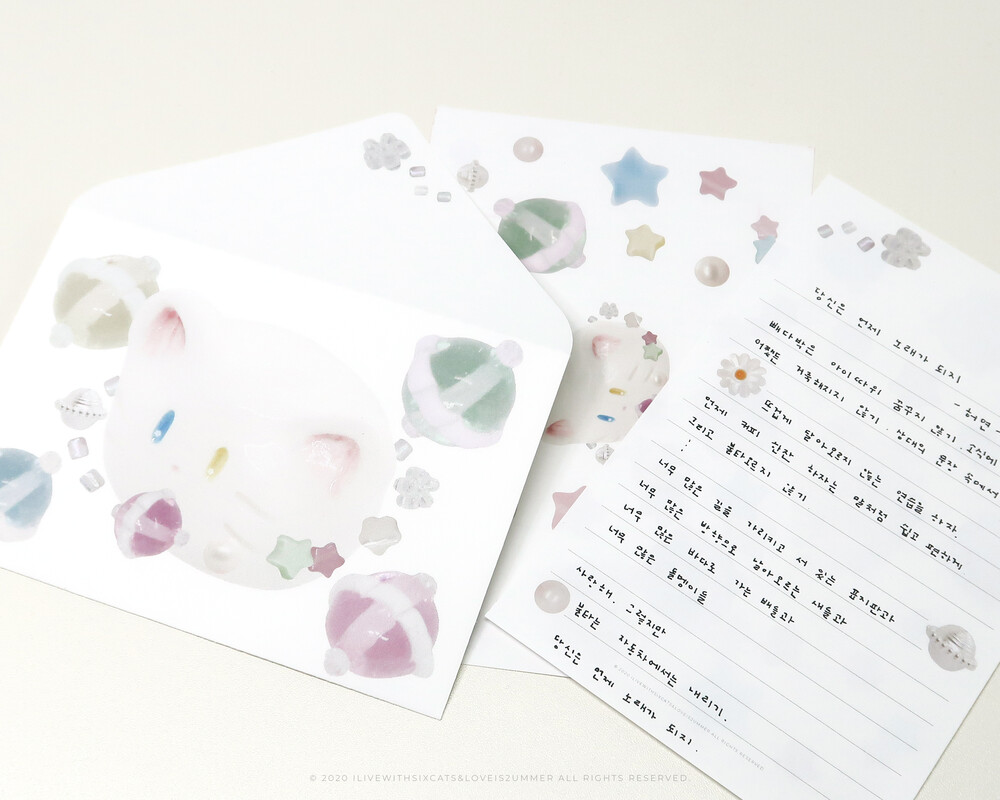 당신은 언제 노래가 되지
- 허연 -
빼다박은 아이 따위 꿈꾸지 않기. 소식에
어쨌든 거룩해지지 않기. 상대의 문장 속에서
뜨겁게 달아오르지 않는 연습을 하자.
언제 커피 신잔 하자는 말처럼 쉽고 편하게
그리고 불타오르지 않기.
⋮
너무 많은 길을 가리키고 서 있는 표지판과
너무 많은 방향으로 날아오르는 새들과
너무 많은 바다로 가는 배들과
너무 많은 돌멩이들
사랑해. 그렇지만
불타는 자동차에서는 내리기.
당신은 언제 노래가 되지.
© 2020 ILIVEWITHSIXCATS&LOVEIS2UMMER ALL RIGHTS RESERVED.
© 2020 ILIVEWITHSIXCATS&LOVEIS2UMMER ALL RIGHTS RESERVED.